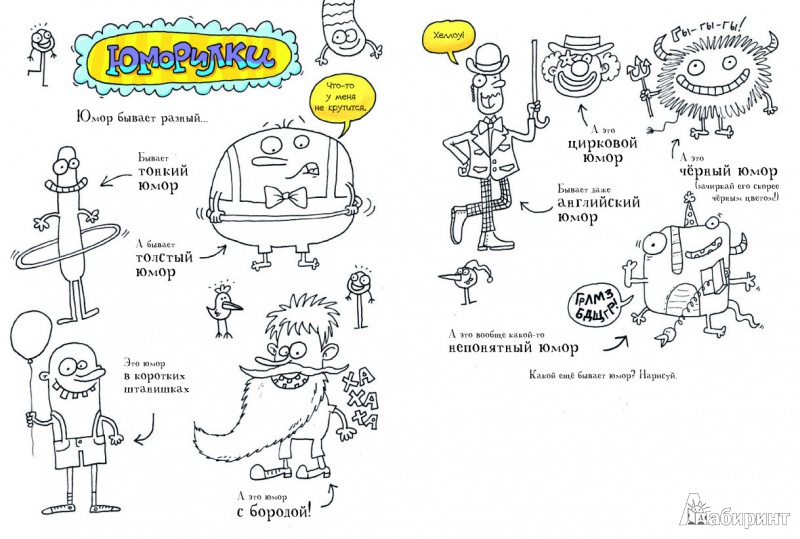 Юморилки
Юмор бывает разный...
Что-то
у меня
не крутится.
Бывает
тонкий
юмор
А бывает
толстый
юмор
Это юмор
в коротких
штанишках
ха
ха
ха
А это юмор
с бородой!
Хеллоу!
Гы-гы-гы!
А это
цирковой
юмор
А это
чёрный юмор
(зачиркай его скорее
чёрным цветом!)
Бывает даже
английский
юмор
ГРЛМЗ
БДЩГР!
А это вообще какой-то
непонятный юмор
Какой ещё бывает юмор? Нарисуй.
Лабиринт